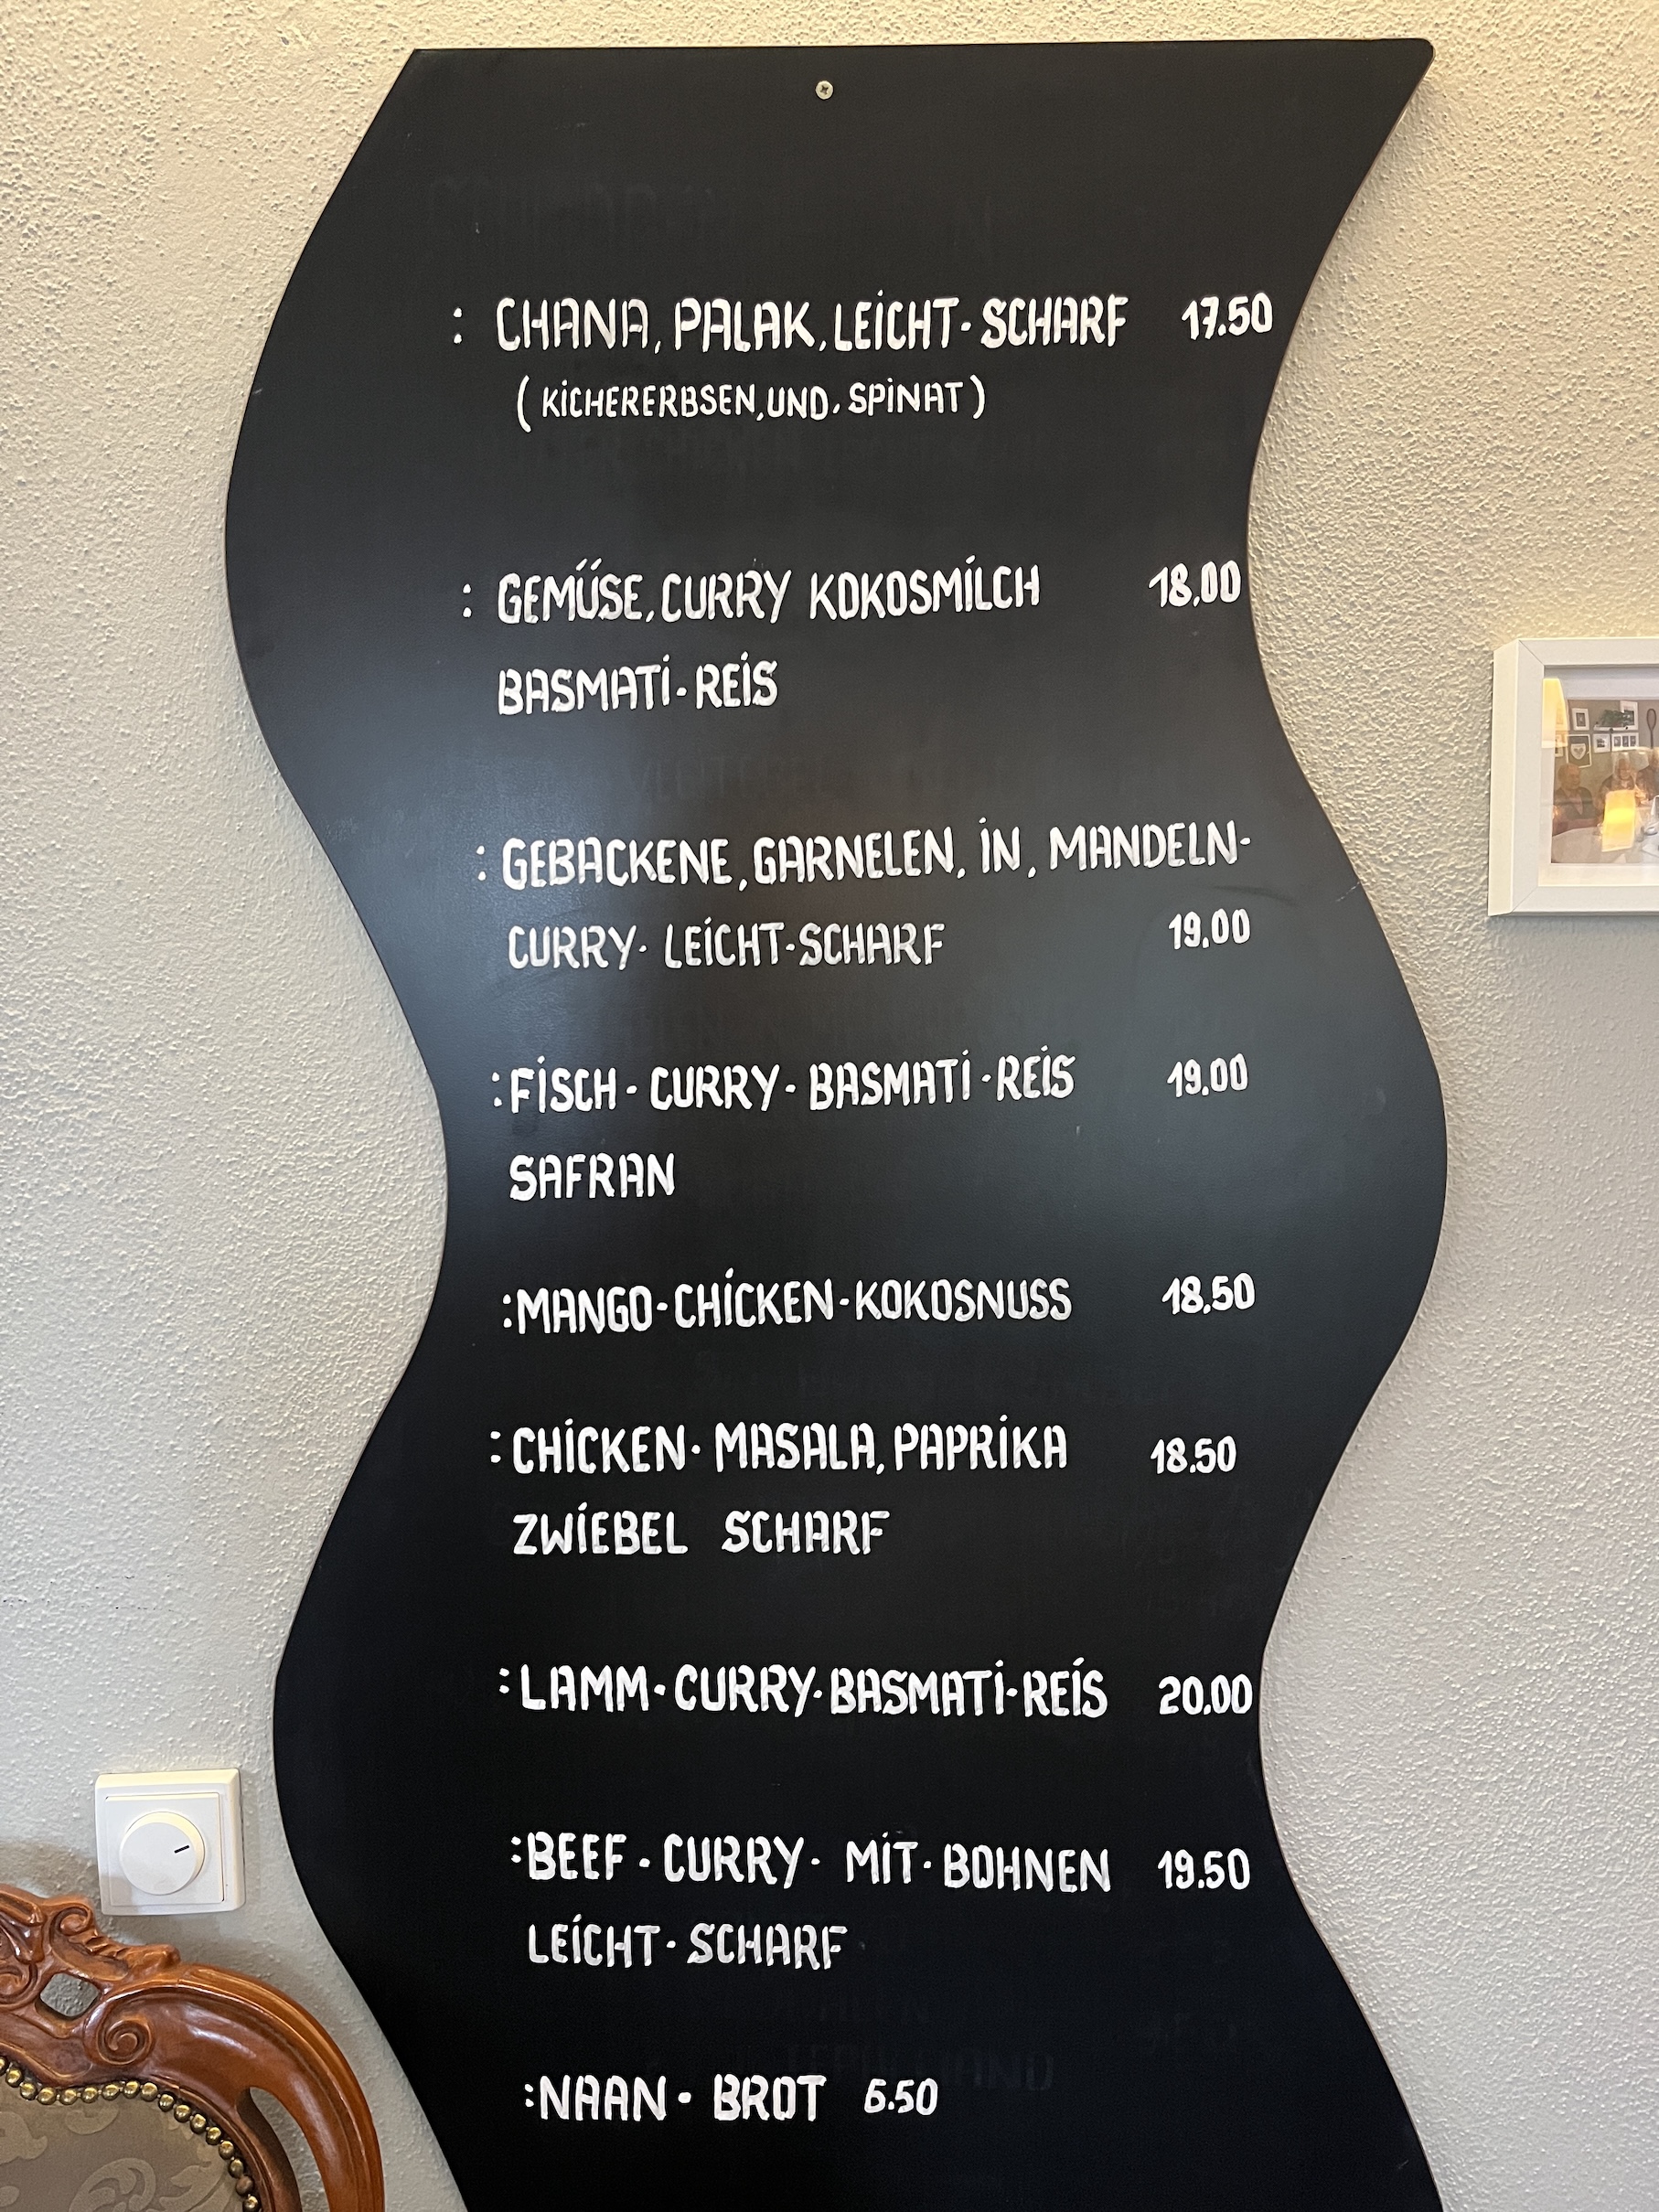 : CHANA, PALAK, LEICHT-SCHARF 17.50
( KICHERERBSEN, UND, SPINAT )
: GEMÜSE, CURRY KOKOSMILCH 18.00
BASMATI-REIS
: GEBACKENE, GARNELEN, IN, MANDELN-
CURRY- LEICHT-SCHARF 19.00
: FISCH - CURRY - BASMATI - REIS 19.00
SAFRAN
: MANGO-CHICKEN-KOKOSNUSS 18.50
: CHICKEN- MASALA, PAPRIKA 18.50
ZWIEBEL SCHARF
: LAMM-CURRY-BASMATI-REIS 20.00
: BEEF - CURRY - MIT-BOHNEN 19.50
LEICHT-SCHARF
: NAAN - BROT 6.50